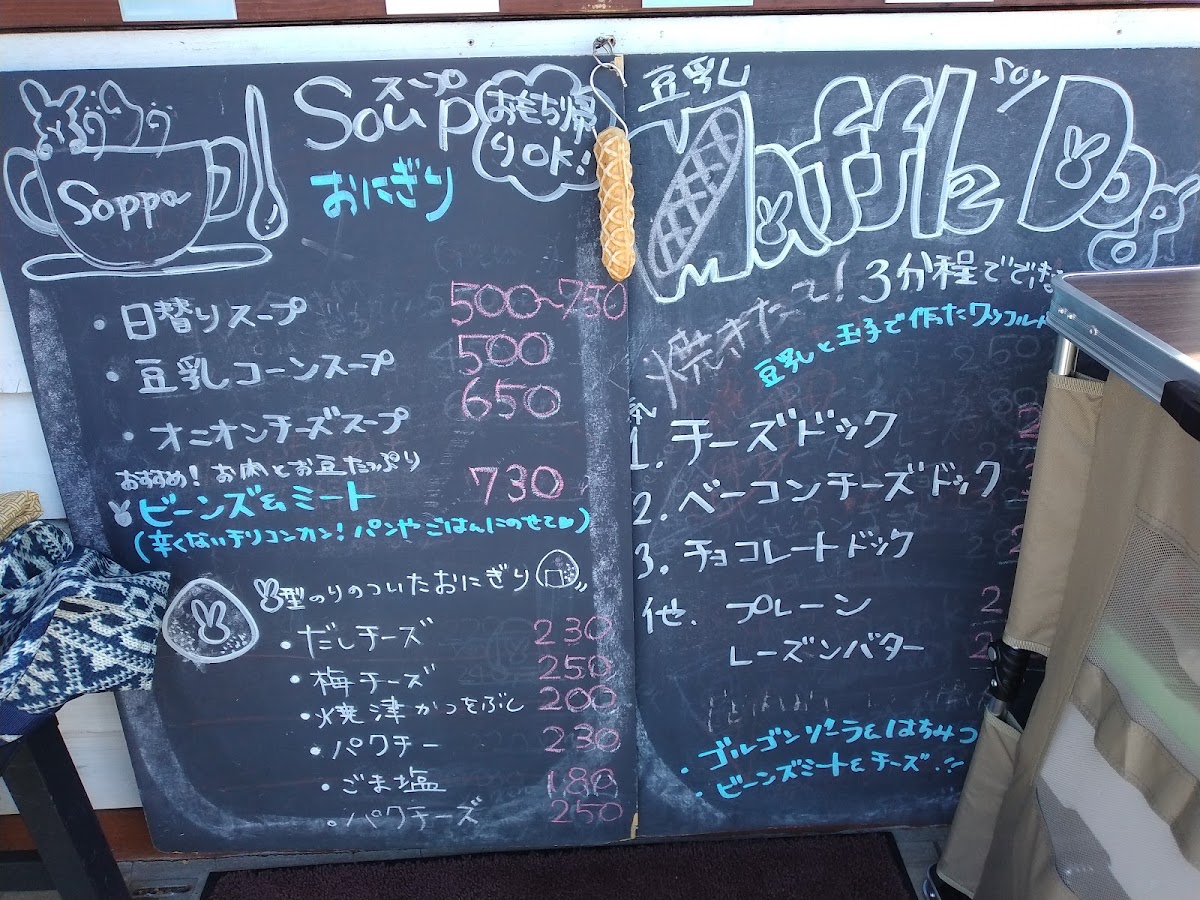 Soppa
スープ
Soup
おもち帰
りOK!
おにぎり
・日替りスープ 500~750
・豆乳コーンスープ 500
・オニオンチーズスープ 650
おすすめ! お肉とお豆たっぷり
ビーンズ&ミート 730
(辛くないチリコンカン! パンやごはんにのせて♡)
型のりのついたおにぎり
・だしチーズ 230
・梅チーズ 250
・焼津かつをぶし 200
・パクチー 230
・ごま塩 180
・パクチーズ 250
豆乳 Soy
Waffle Dog
焼きたて! 3分程でできま
豆乳と玉子で作ったワッフルド
1. チーズドック 2
2. ベーコンチーズドック
3. チョコレートドック 2
他. プレーン 2
レーズンバター 2
・ゴルゴンゾーラ&はちみつ
・ビーンズミート&チーズ!!